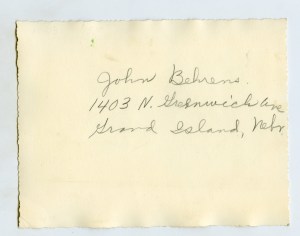 John Behrens.
1403 N. Greenwich Ave
Grand Island, Nebr.